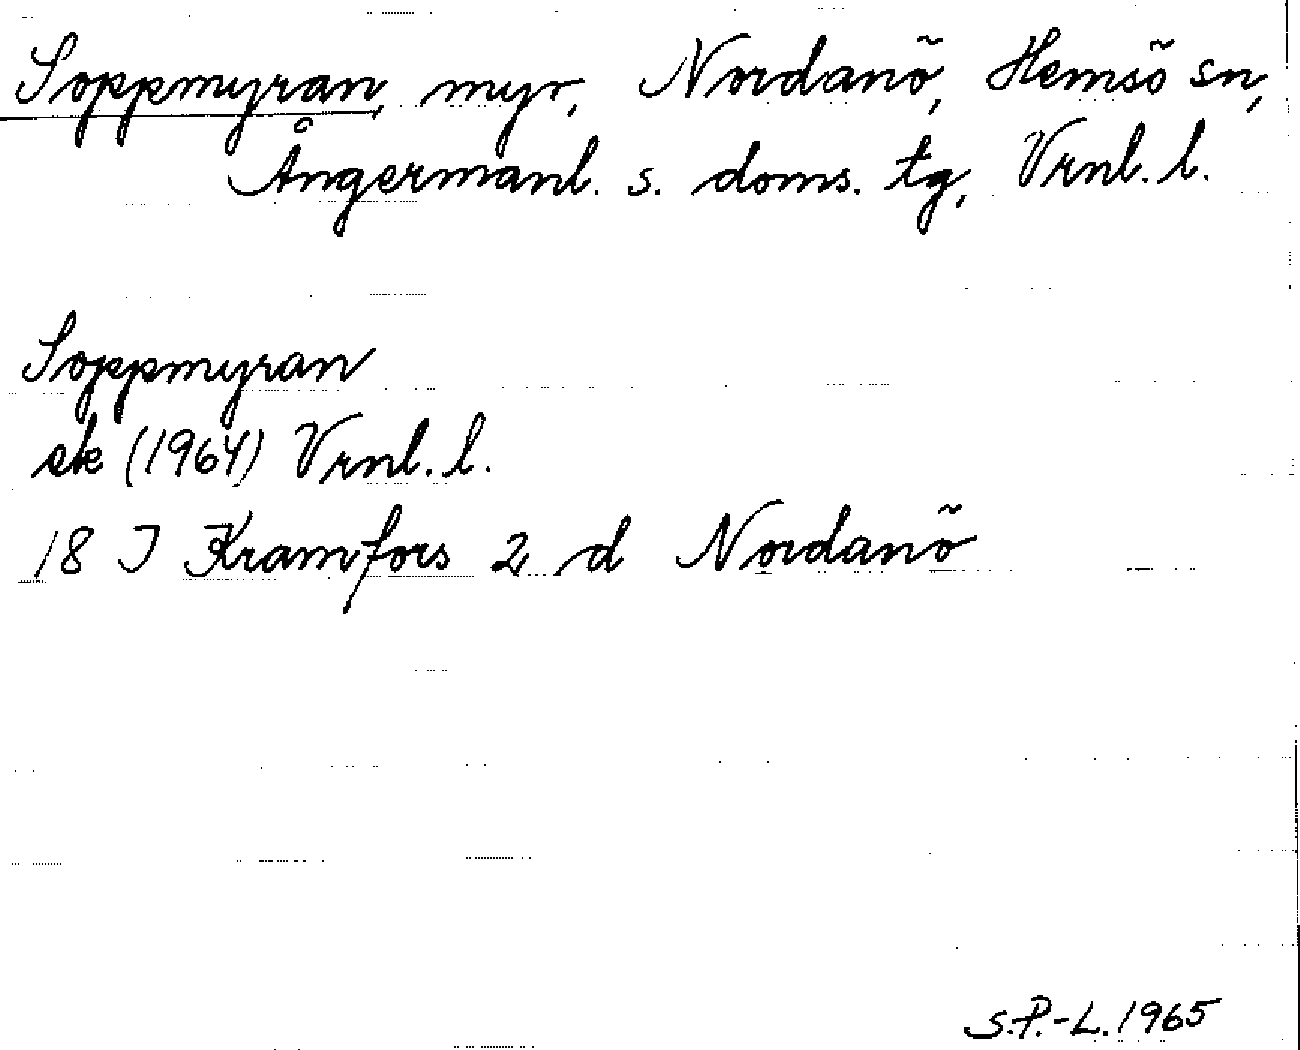 Soppmyran, myr, Nordanö, Hemsö sn,
Ångermanl. s. doms. tg, Vrnl. l.
Soppmyran
ek (1964) Vrnl. l.
18 J Kramfors 2 d Nordanö
S.P.-L. 1965